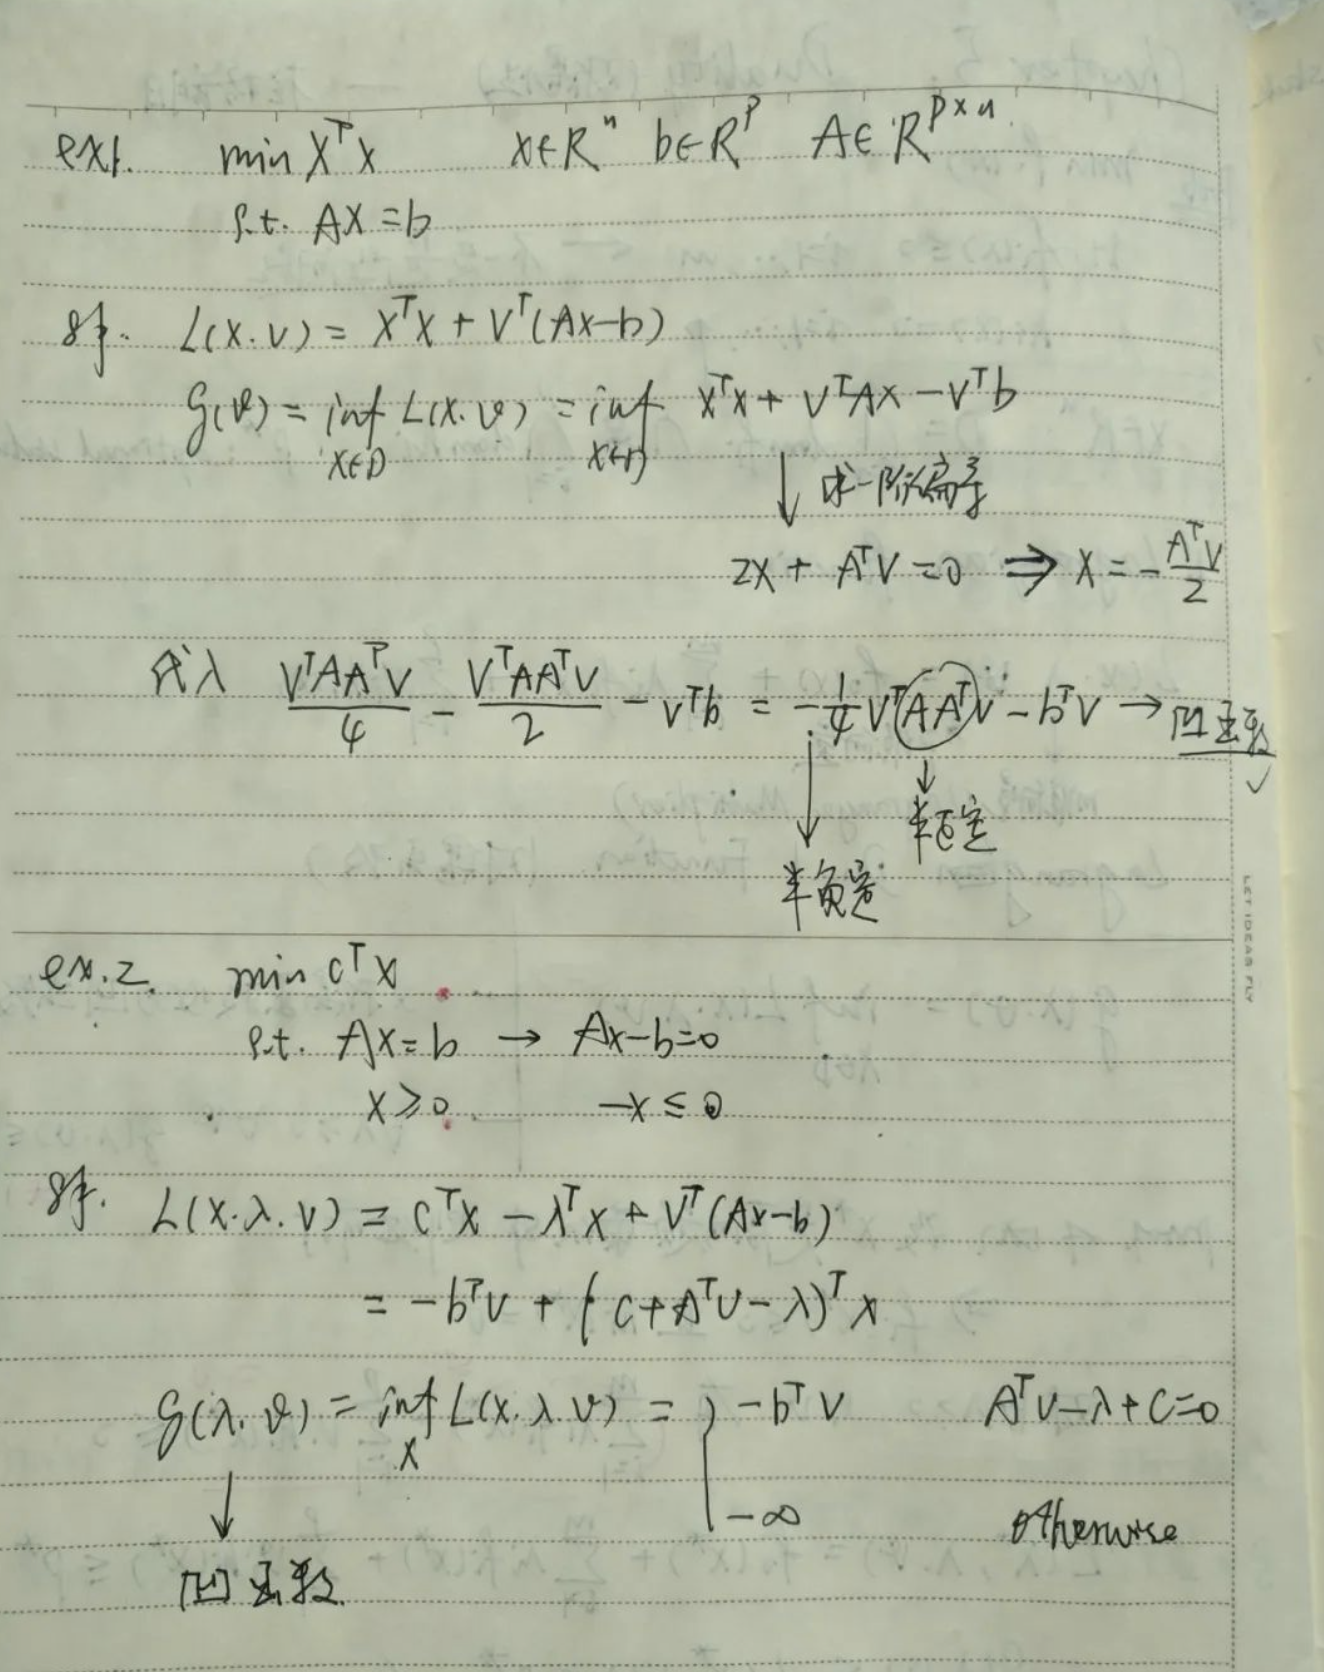 ex1. min X^T x x∈R^n b∈R^p A∈R^{p×n}
s.t. AX=b
解. L(x.v) = X^T X + V^T(Ax-b)
g(v) = inf_{x∈D} L(x.v) = inf_{x∈D} x^T x + V^T Ax - V^T b
↓ 求一阶偏导
2x + A^T V = 0 ⇒ x = - A^T V / 2
代入 V^T A A^T V / 4 - V^T A A^T V / 2 - V^T b = -1/4 V^T A A^T V - b^T V → 凹函数 ✓
↓ 半正定
↓ 半负定
LET IDEAS FLY
ex.2. min c^T x
s.t. Ax=b → Ax-b=0
x≥0 -x≤0
解. L(x.λ.v) = c^T x - λ^T x + V^T(Ax-b)
= -b^T v + (c+A^T v-λ)^T x
g(λ.v) = inf_x L(x.λ.v) = { -b^T v A^T v-λ+c=0
-∞ otherwise
↓
凹函数